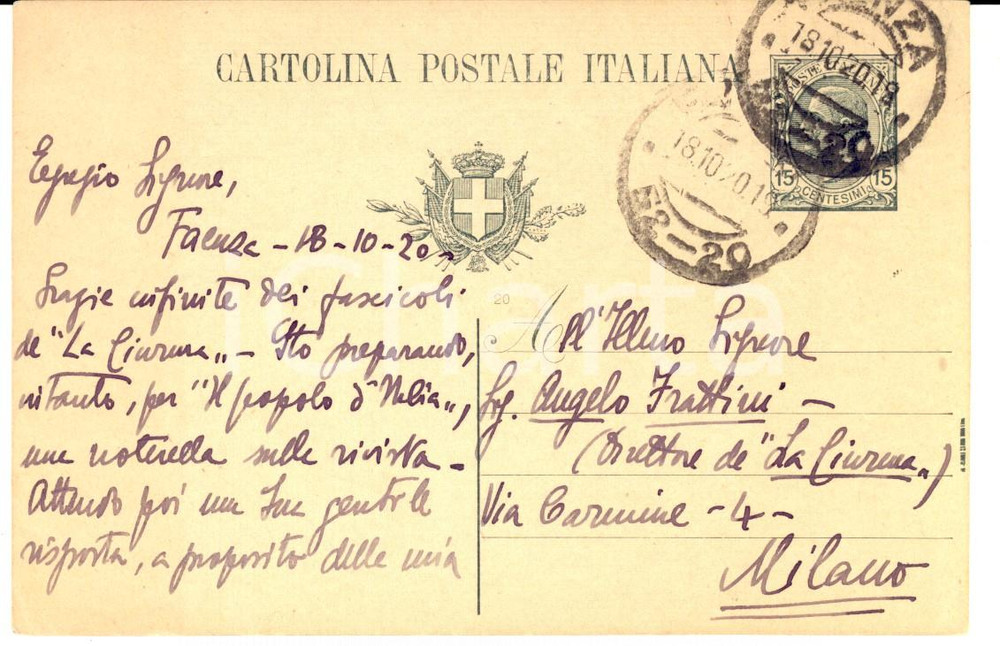 CARTOLINA POSTALE ITALIANA
FAENZA
18.10.20.19
18.10.20.19
52-20
POSTE
15 CENTESIMI 15
Egregio Signore,
Faenza - 18-10-20 -
Grazie infinite dei fascicoli
de "La Ciurma" - Sto preparando,
intanto, per "Il popolo d'Italia",
una noterella sulla rivista -
Attendo poi una Sua gentile
risposta, a proposito delle mia
20
All'Illmo Signore
Sig. Angelo Frattini -
(Direttore de "La Ciurma")
Via Carmine - 4 -
Milano
iCharta